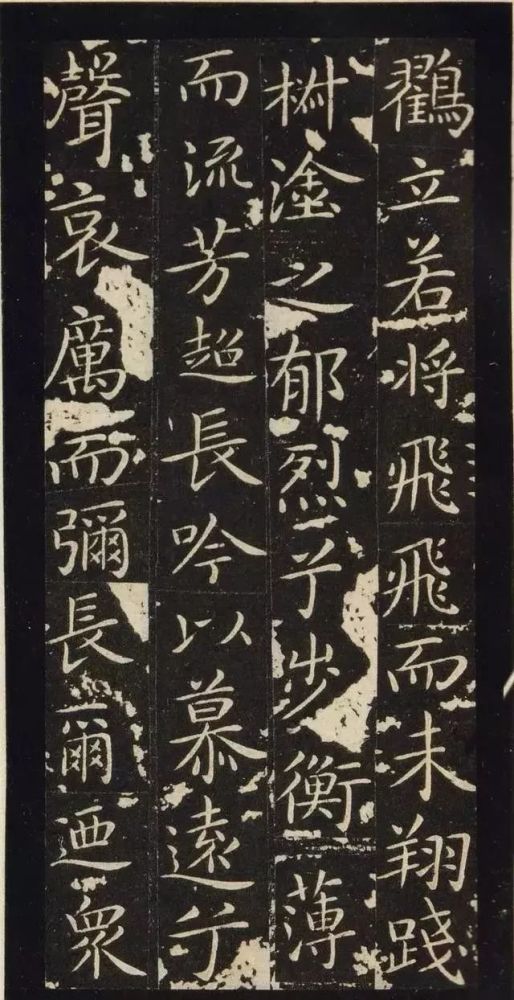 鸖立若将飛飛而未翔踐
椒塗之郁烈兮步衡薄
而流芳超長吟以慕遠兮
聲哀厲而彌長爾迺眾